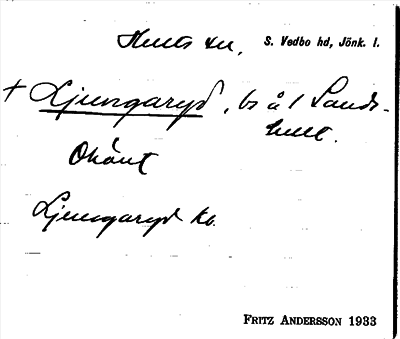 Hults sn, S. Vedbo hd, Jönk. l.
† Ljungaryd, bs å 1 Sands-
hult.
Okänt
Ljungaryd kb.
FRITZ ANDERSSON 1933